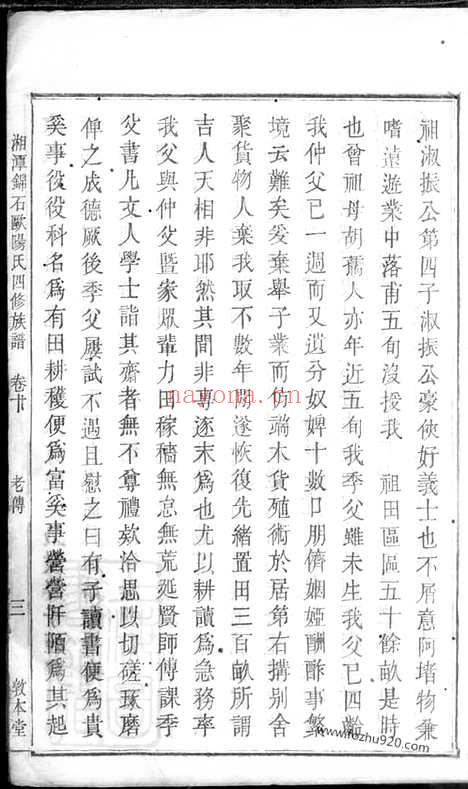 祖淑振公第四子淑振公豪俠好義士也不屑意阿堵物兼
嗜遠遊業中落甫五旬沒授我 祖田區區五十餘畝是時
也曾祖母胡孺人亦年近五旬我季父雖未生我父已四齡
我仲父已一週而又遺分奴婢十數口朋儕姻婭酬酢事繁
境云難矣爰棄舉子業而仿端木貨殖術於居第右搆别舍
聚貨物人棄我取不數年間遂恢復先緒置田三百畝所謂
吉人天相非耶然其間非專逐末為也尤以耕讀為急務率
我父與仲父曁家眾輩力田稼穡無怠無荒延賢師傅課季
父書凡文人學士詣其齋者無不尊禮欵洽思以切磋琢磨
俾之成德厥後季父屢試不遇且慰之曰有子讀書便為貴
奚事役役科名為有田耕穫便為富奚事營營阡陌為其起
湘潭錦石歐陽氏四修族譜 卷廿 老傳 三 敦本堂
nayona.cn
www.fozhu920.com